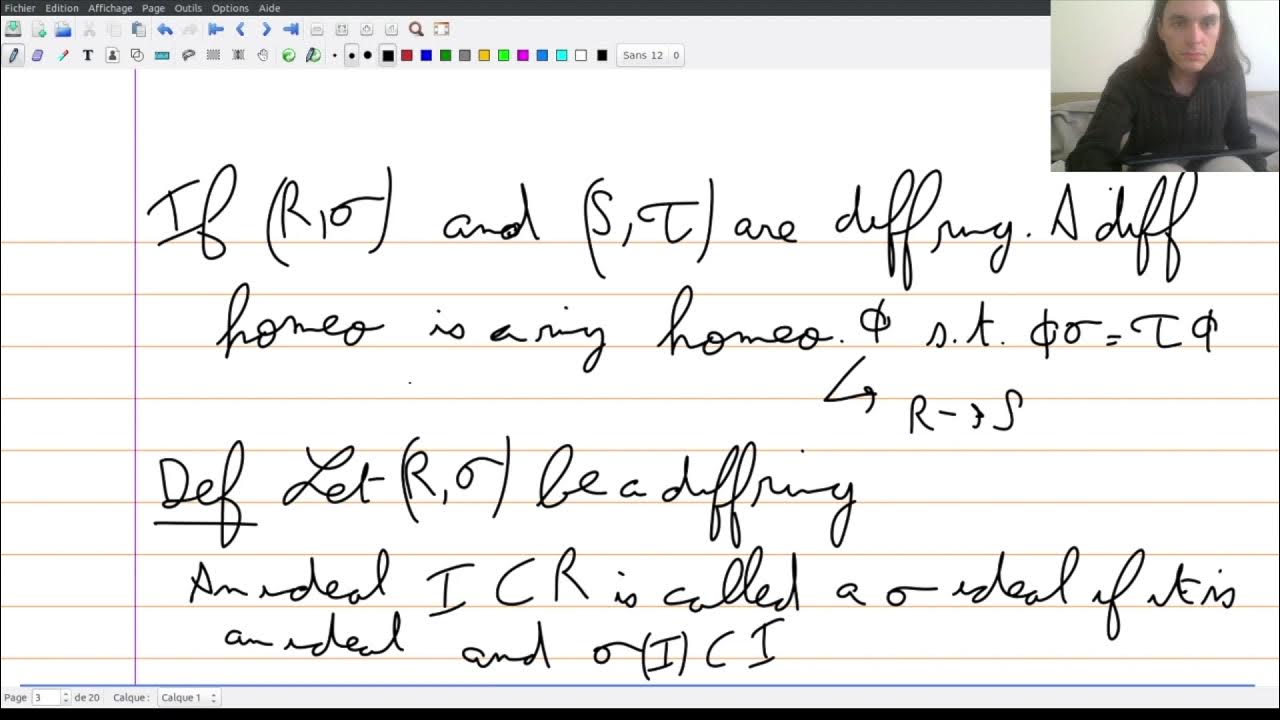 Fichier Edition Affichage Page Outils Options Aide
Sans 12 0
If (R,σ) and (S,τ) are diff ring. A diff
homeo is a ring homeo. φ s.t. φσ=τφ
R→S
Def Let (R,σ) be a diff ring
An ideal I ⊂ R is called a σ ideal if it is
an ideal and σ(I) ⊂ I
Page 3 de 20 Calque : Calque 1